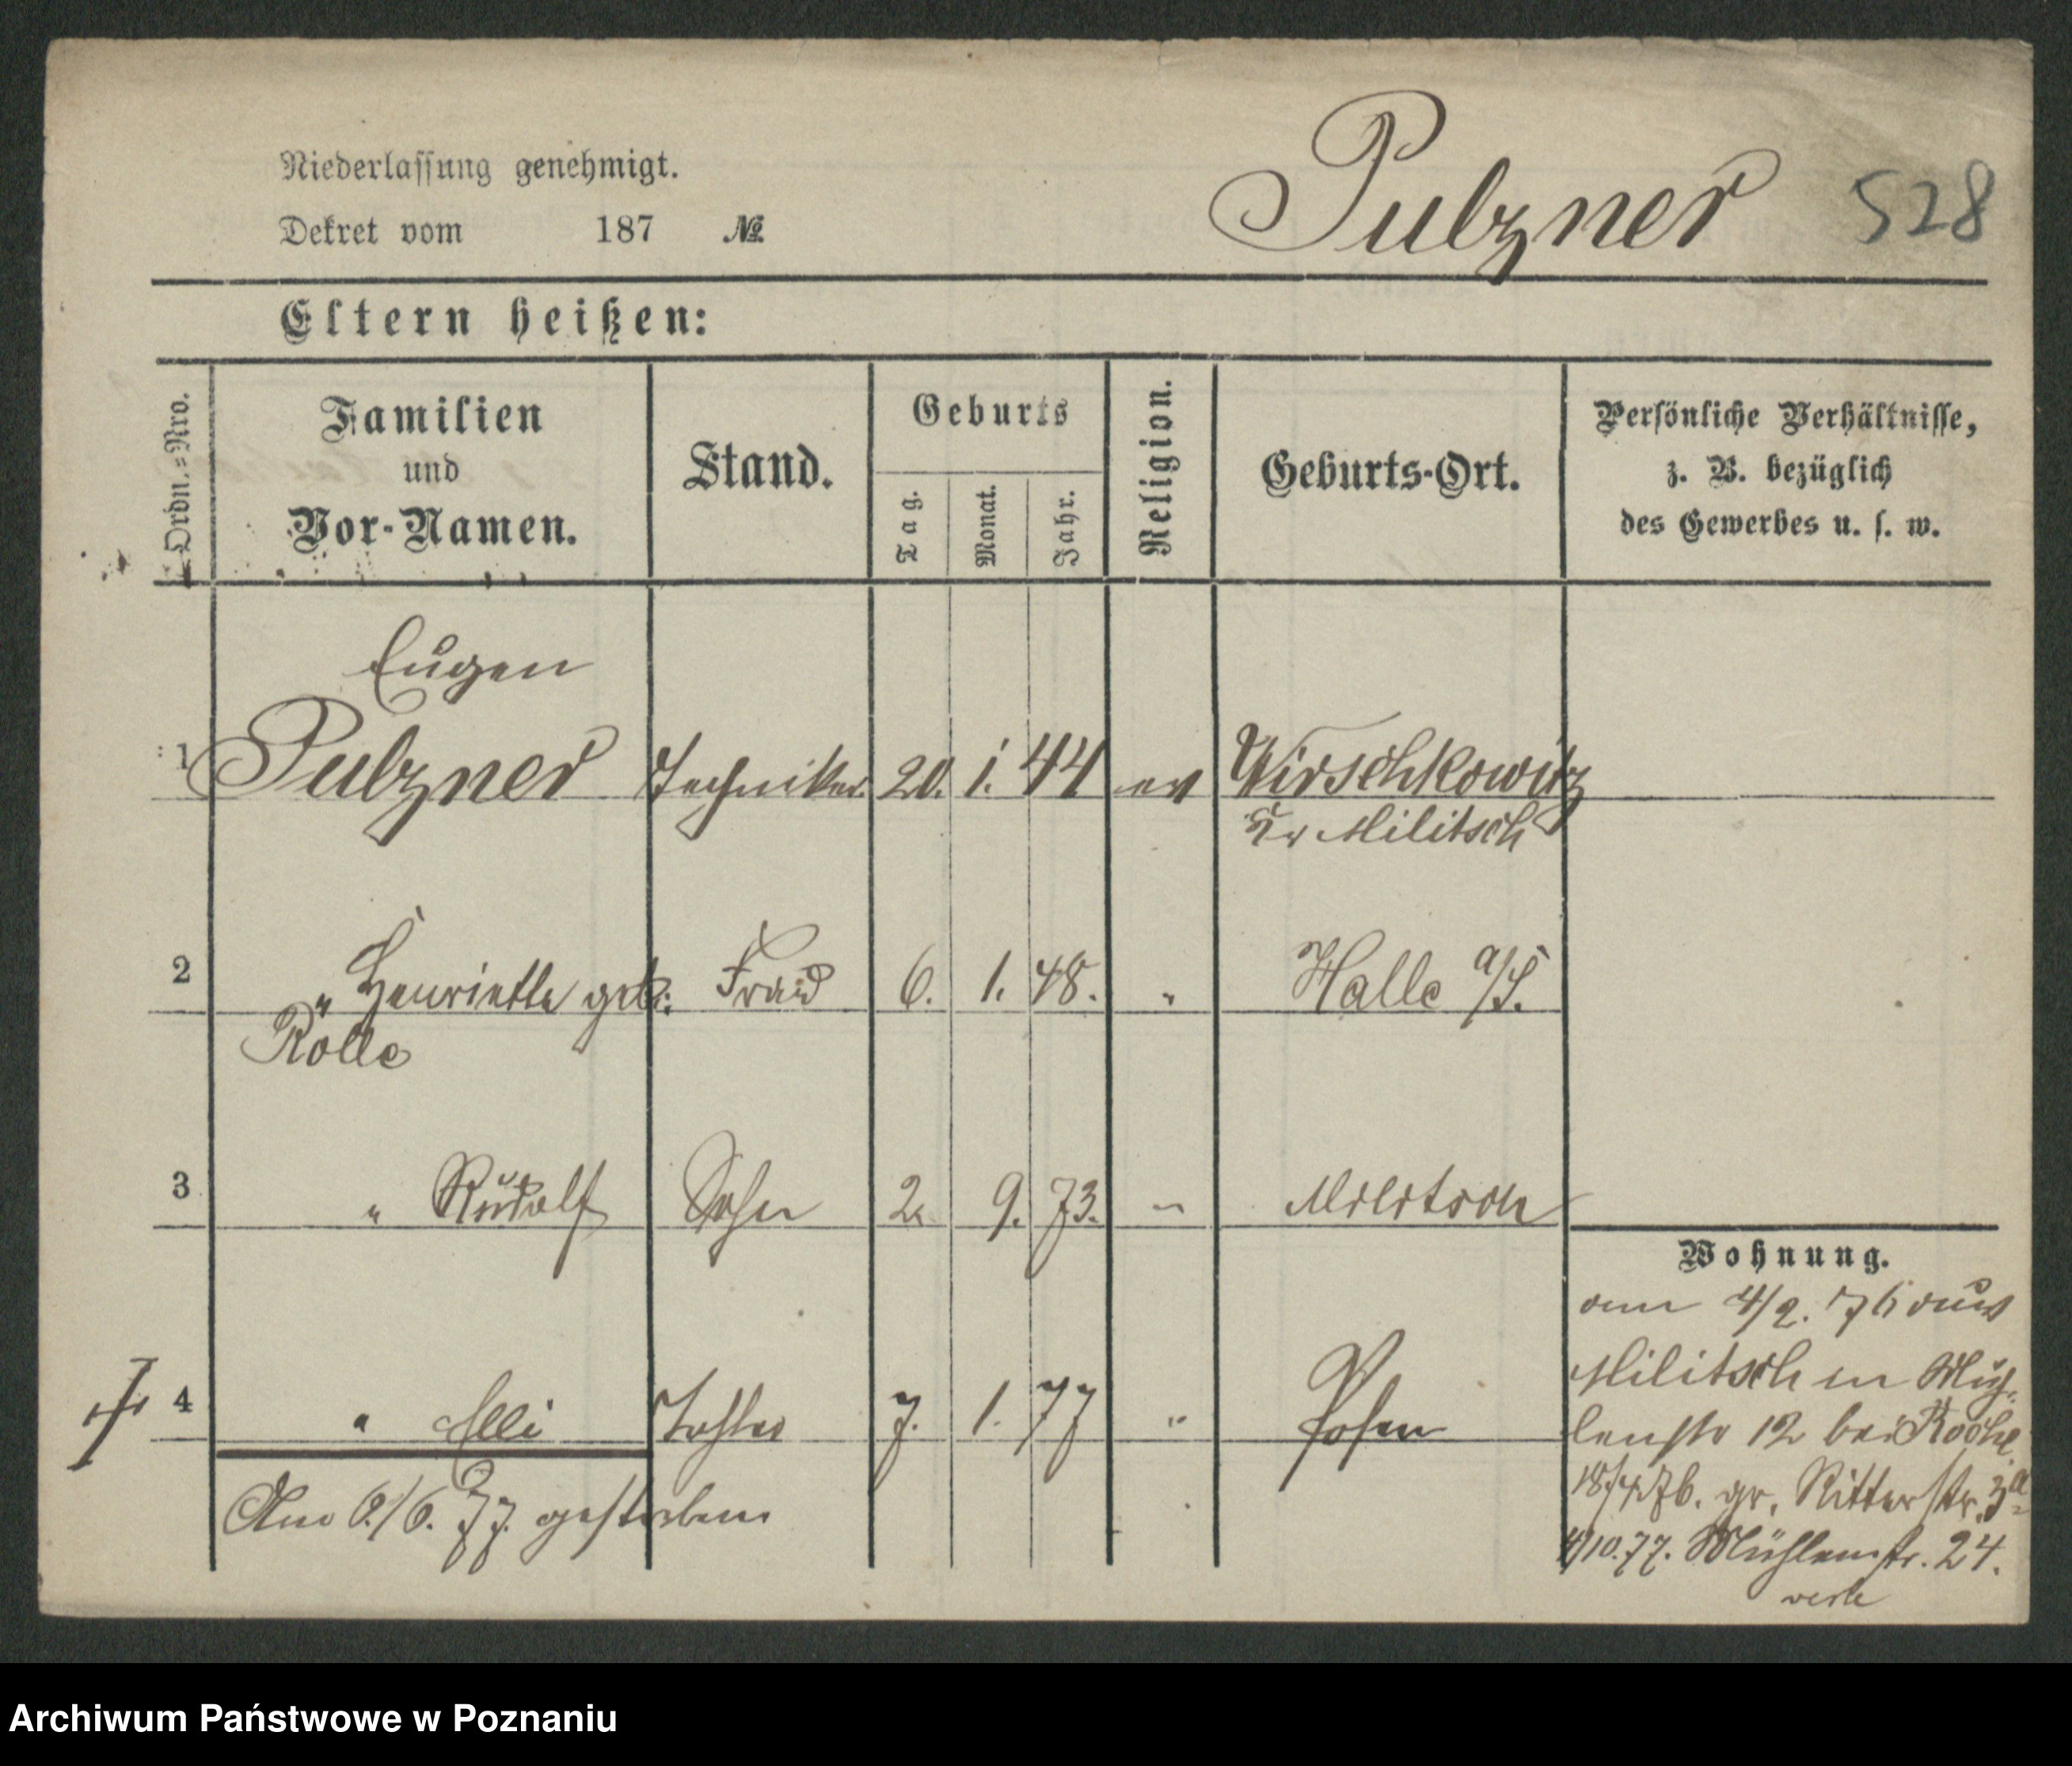 Niederlassung genehmigt.
Dekret vom 187 №
Pulzner 528
Eltern heißen:
Ordn.=Nro.
Familien
und
Vor-Namen.
Stand.
Geburts
Tag.
Monat.
Jahr.
Religion.
Geburts-Ort.
Persönliche Verhältnisse,
z. B. bezüglich
des Gewerbes u. s. w.
Eugen
1 Pulzner Techniker 20. 1. 44 ev Wirschkowitz
Kr Militsch
2 " Henriette geb: Frau 6. 1. 48. " Halle a/S.
Rölle
3 " Rudolf Sohn 2. 9. 73. " Militsch
4 " Elli Tochter 7. 1. 77 " Posen
Am 6./6. 77. gestorben
Wohnung.
4/2. 76 aus
Militsch in Müh-
lenstr 12 bei
18/4. 76. gr. Ritterstr. 3a
4/10. 77. Mühlenstr. 24.
Archiwum Państwowe w Poznaniu